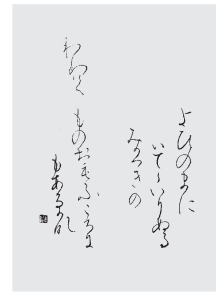 よひのまに
いてゝいりぬる
みかつきの
われて ものおもふころに
もあるか